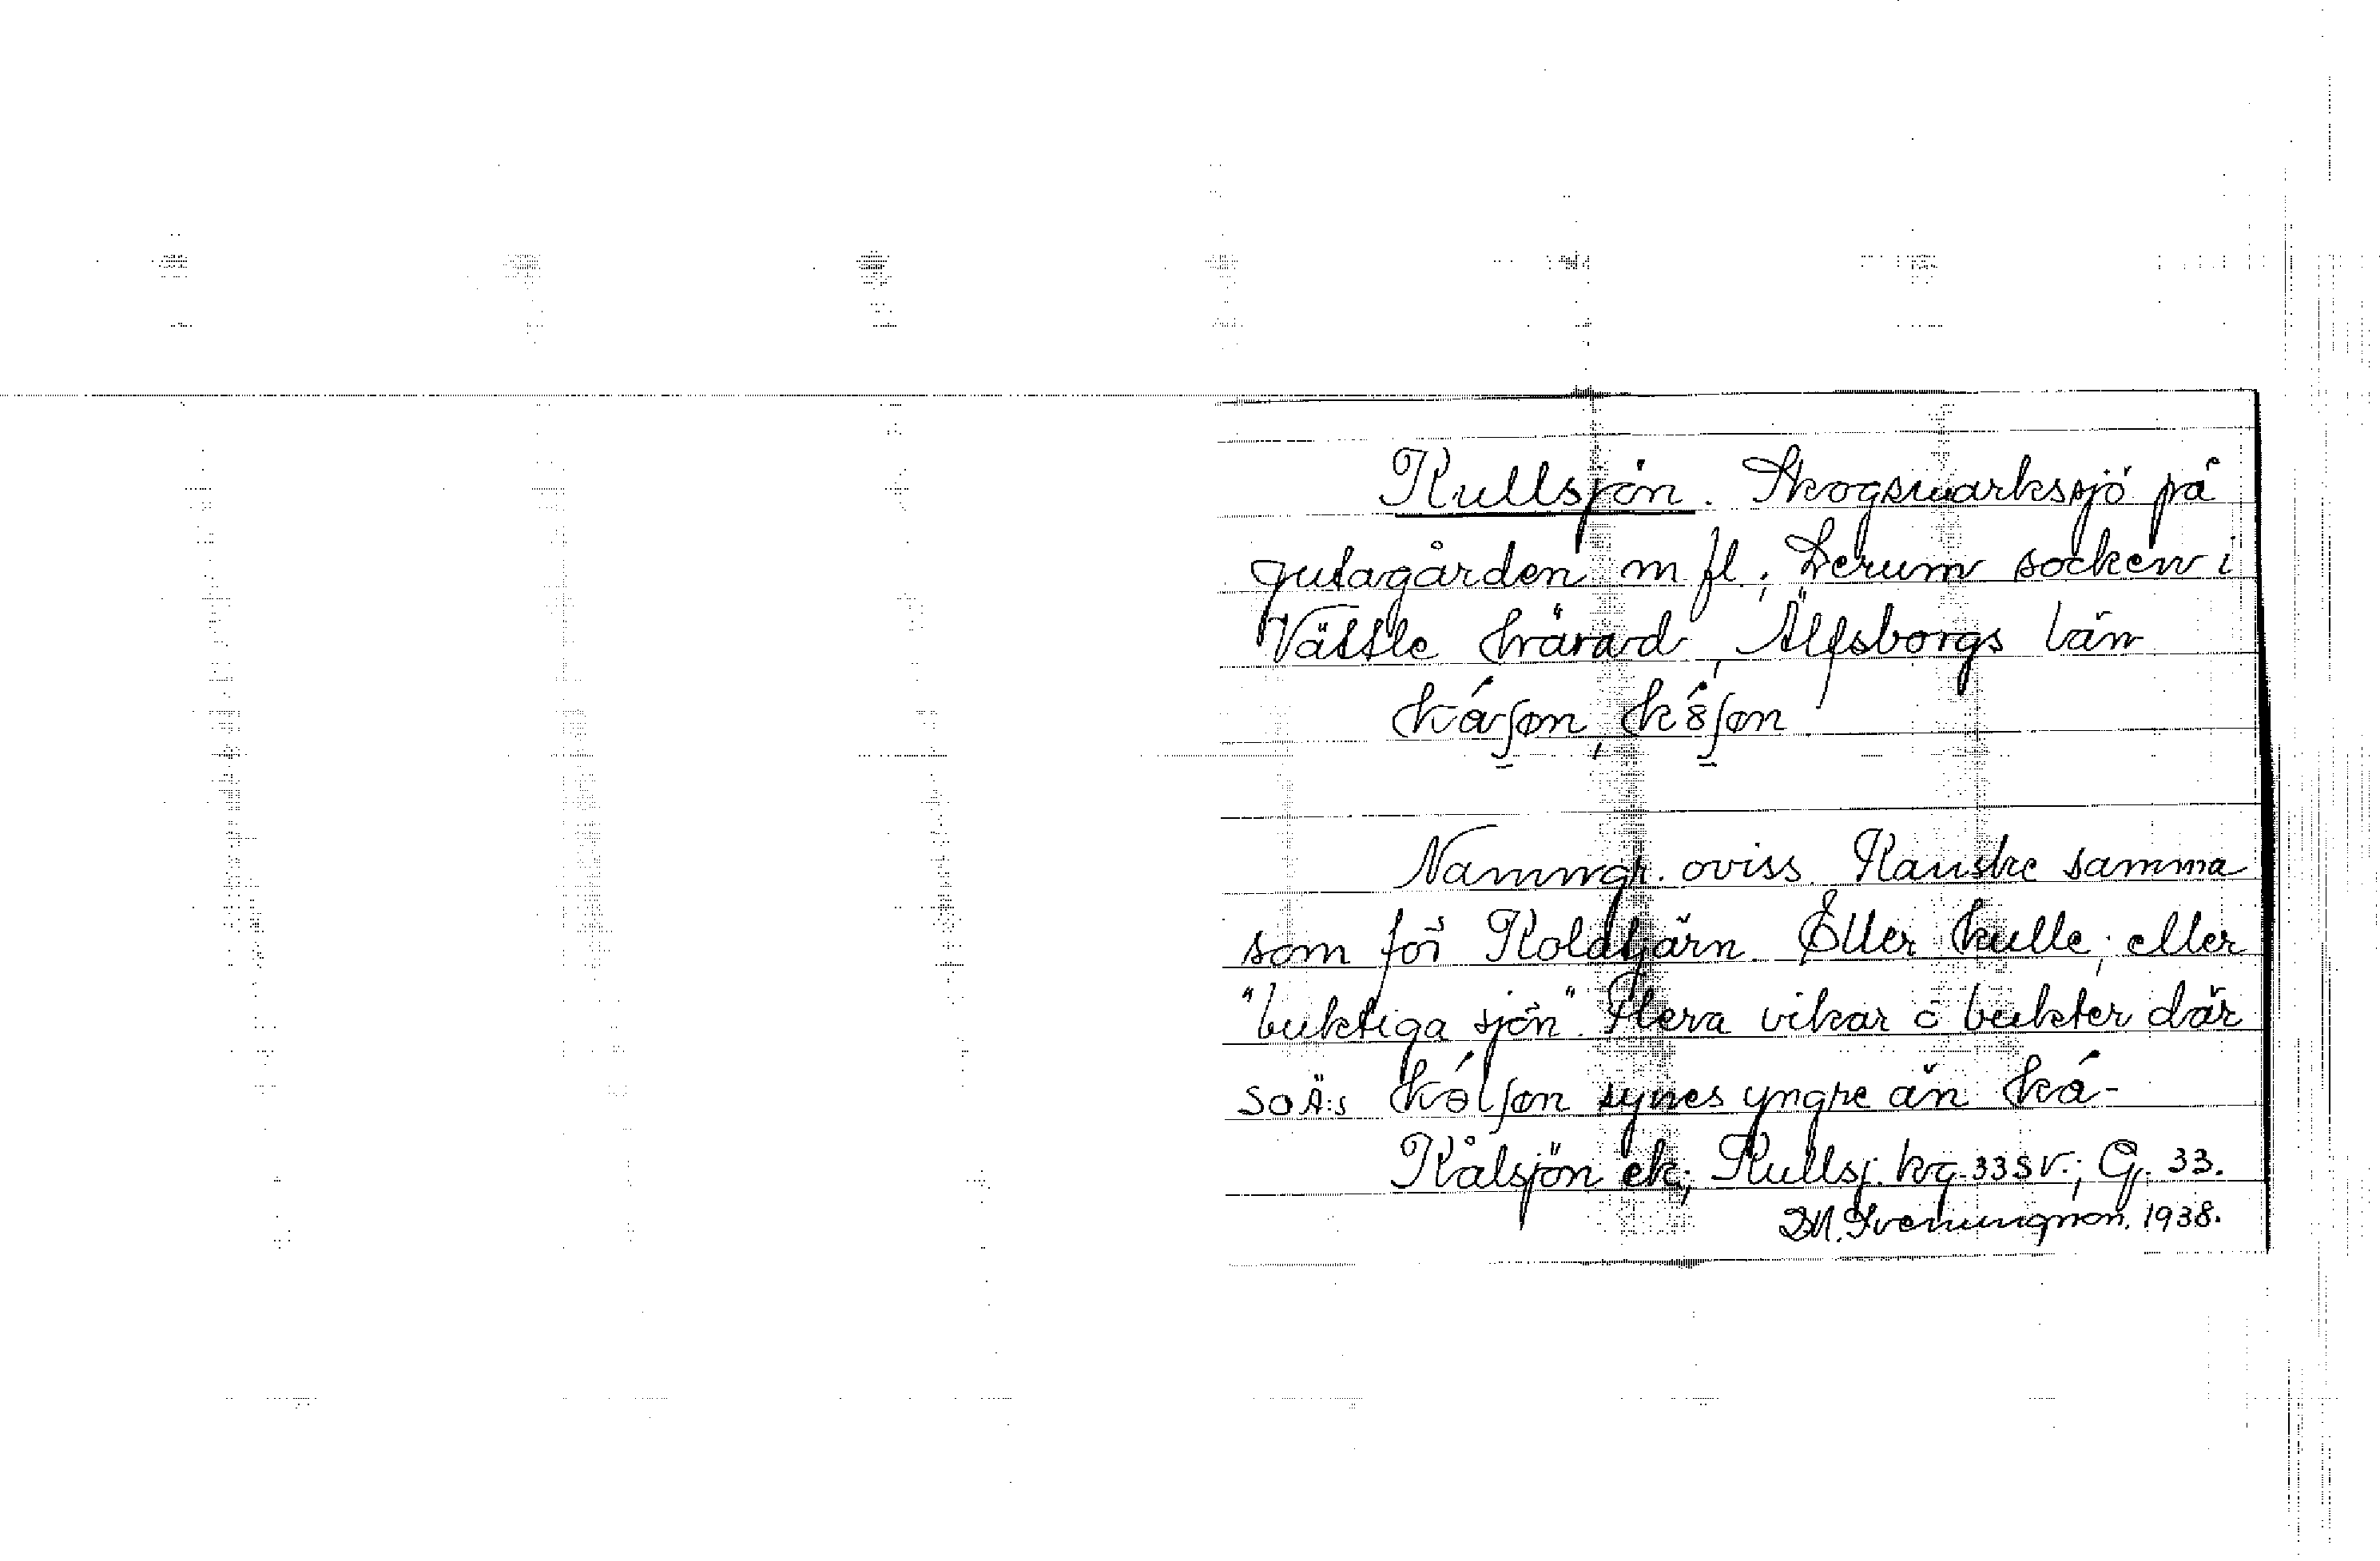 Kullsjön. Skogsmarkssjö på
gutagården m fl.; Lerum socken i
Vättle härad, Älfsborgs län
kǻʃøn, k8́ʃøn
Namngr. oviss. Kanske samma
som för Koldtjärn. Eller kulle; eller
"buktiga sjön". Flera vikar o bukter där
SOÄ:s kól ʃøn synes yngre än kǻ-
Kålsjön ek; Kullsj. kg. 33 SV.; Gj. 33.
1938.